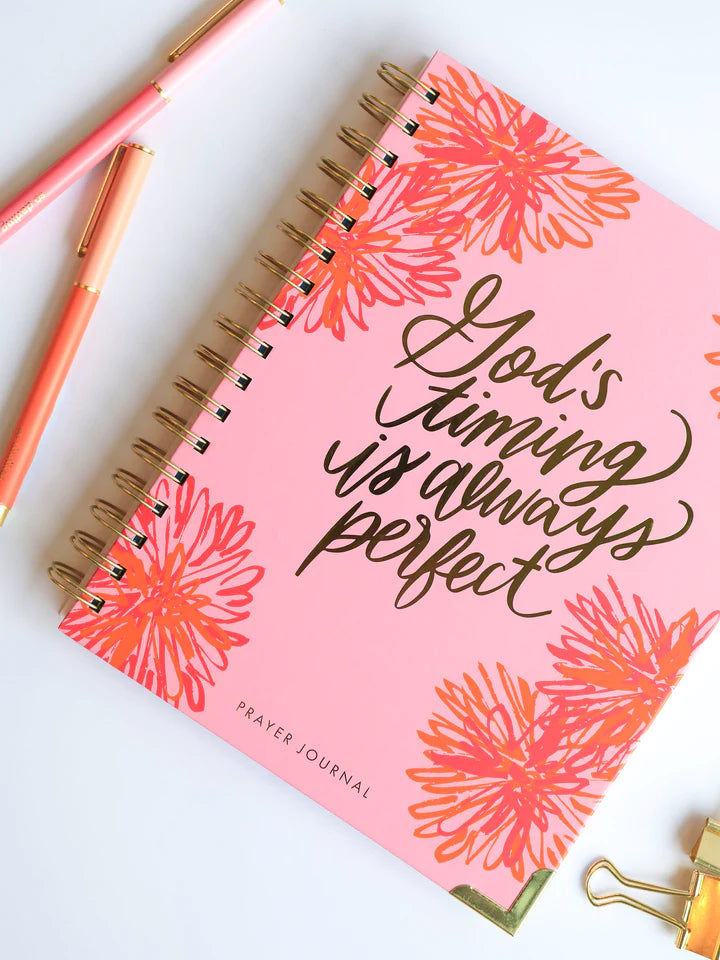 God's
timing
is always
perfect
PRAYER JOURNAL